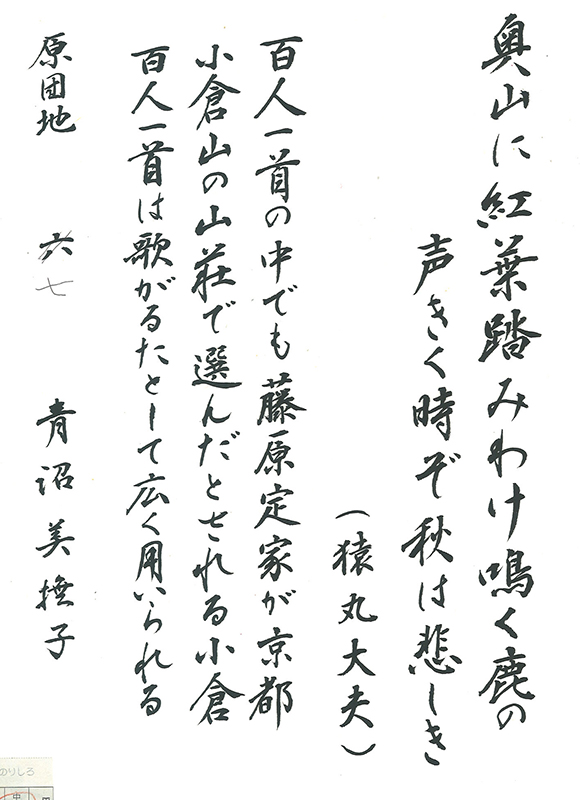 奥山に紅葉踏みわけ鳴く鹿の
声きく時ぞ秋は悲しき
(猿丸大夫)
百人一首の中でも藤原定家が京都
小倉山の山荘で選んだとされる小倉
百人一首は歌がるたとして広く用いられる
原団地 六 青沼美撫子
七
のりしろ
中